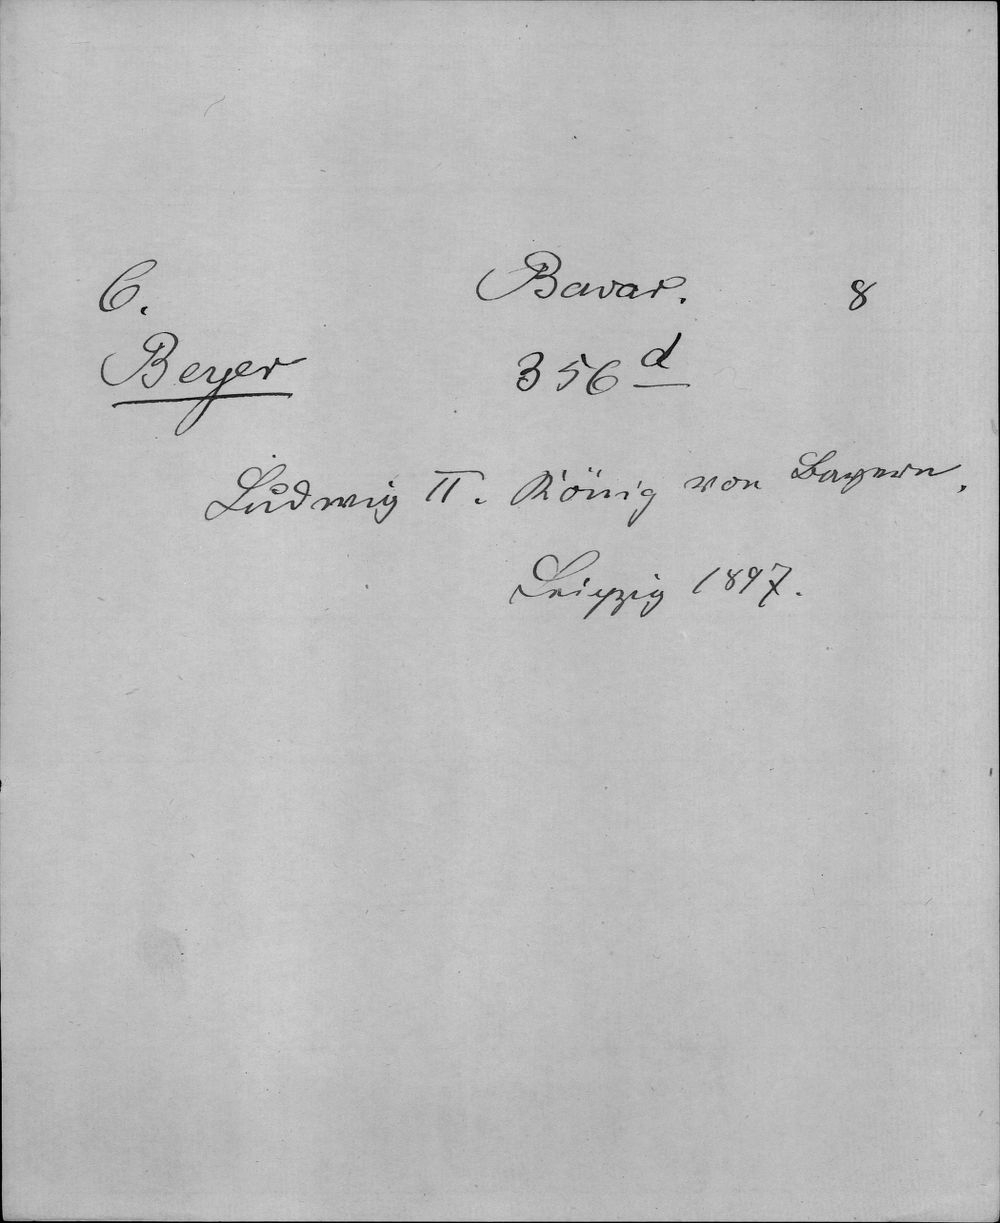 C. Bavar. 8
Beyer 356 d
Ludwig II. König von Bayern,
Leipzig 1897.